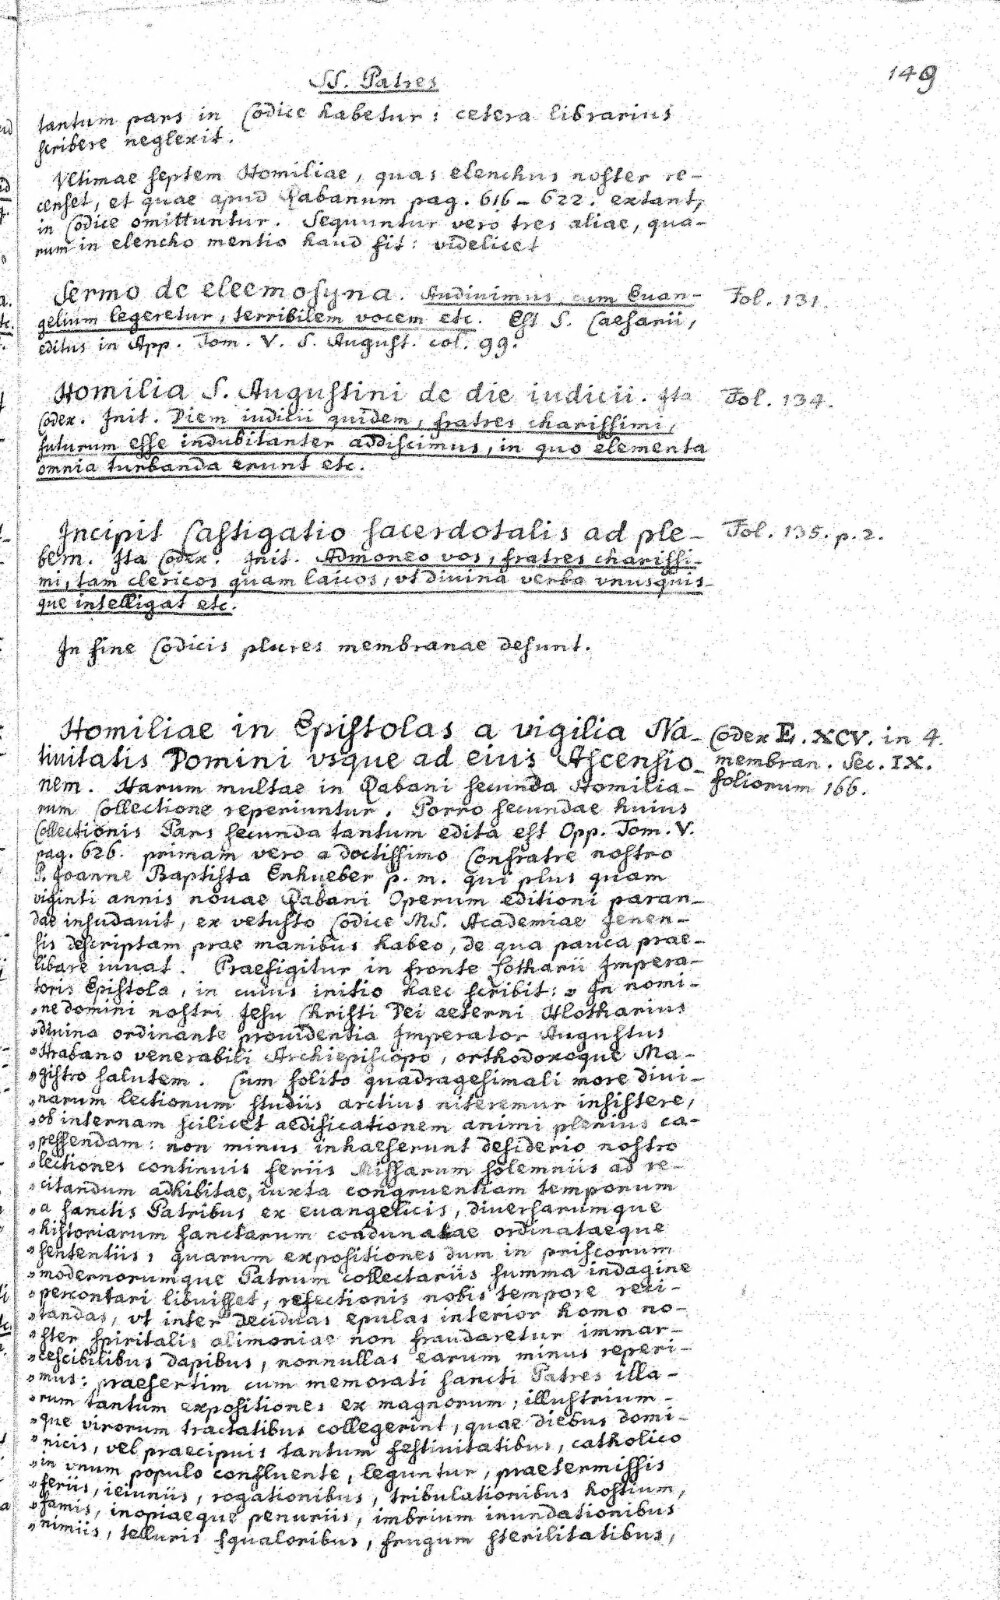 SS. Patres
149
tantum pars in Codice habetur: cetera librarius
scribere neglexit.
Vltimae septem Homiliae, quas elenchus noster re-
censet, et quae apud Rabanum pag. 616-622. extant,
in Codice omittuntur. Sequuntur vero tres aliae, qua-
rum in elencho mentio haud fit: videlicet
Sermo de eleemosyna. Audivimus, cum Euan-
Fol. 131.
gelium legeretur, terribilem vocem etc. Est S. Caesarii,
editus in App. Tom. V. S. August. col. 99.
Homilia S. Augustini de die iudicii. Ita
Fol. 134.
Codex. Init. Diem iudicii quidem, fratres charissimi,
futurum esse indubitanter addiscimus, in quo elementa
omnia turbanda erunt etc.
Incipit Castigatio sacerdotalis ad ple-
Fol. 135. p. 2.
bem. Ita Codex. Init. Admoneo vos, fratres charissi-
mi, tam clericos quam laicos, vt divina verba vnusquis-
que intelligat etc.
In fine Codicis plures membranae desunt.
Homiliae in Epistolas a vigilia Na-
Codex E. XCV. in 4.
tiuitatis Domini vsque ad eius Ascensio-
membran. Sec. IX.
nem. Harum multae in Rabani secunda Homilia-
foliorum 166.
rum Collectione reperiuntur. Porro secundae huius
Collectionis Pars secunda tantum edita est Opp. Tom. V.
pag. 626. primam vero a doctissimo Confratre nostro
P. Joanne Baptista Enhueber p. m. qui plus quam
viginti annis nouae Rabani Operum editioni paran-
dae insudauit, ex vetusto Codice MS. Academiae Jenen-
sis descriptam prae manibus habeo, de qua pauca prae-
libare iuuat. Praefigitur in fronte Lotharii Impera-
toris Epistola, in cuius initio haec scribit: „ In nomi-
„ne domini nostri Jesu Kristi Dei aeterni Hlotharius
„diuina ordinante prouidentia Imperator Augustus
„Hrabano venerabili Archiepiscopo, orthodoxoque Ma-
„gistro salutem. Cum solito quadragesimali more diui-
„narum lectionum studiis arctius niteremur insistere,
„ob internam scilicet aedificationem animi plenius ca-
„pessendam: non minus inhaeserunt desiderio nostro
„lectiones continuis feriis Missarum solemniis ad re-
„citandum adhibitae, iuxta congruentiam temporum
„a sanctis Patribus ex euangelicis, diuersarumque
„historiarum sanctarum condunatae ordinataeque
„sententiis, quarum expositiones dum in priscorum
„modernorumque Patrum collectariis summa indagine
„percontari libuisset, refectionis nobis tempore reci-
„tandas, vt inter deciduas epulas interior homo no-
„ster spiritalis alimoniae non fraudaretur immar-
„cescibilibus dapibus, nonnullas earum minus reperi-
„mus: praesertim cum memorati sancti Patres illa-
„rum tantum expositiones ex magnorum, illustrium-
„que virorum tractatibus collegerint, quae diebus domi-
„nicis, vel praecipuis tantum festiuitatibus, catholico
„in vnum populo confluente, leguntur, praetermissis
„feriis, ieiuniis, rogationibus, tribulationibus hostium,
„famis, inopiaeque penuriis, imbrium inundationibus
„nimiis, telluris squaloribus, frugum sterilitatibus,